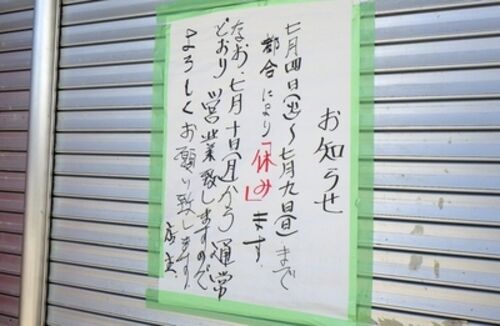 お知らせ
七月四日(火)〜七月九日(日)まで
都合により「休み」ます。
なお、七月十日(月)から通常
どおり営業致しますので
よろしくお願い致します。
店主